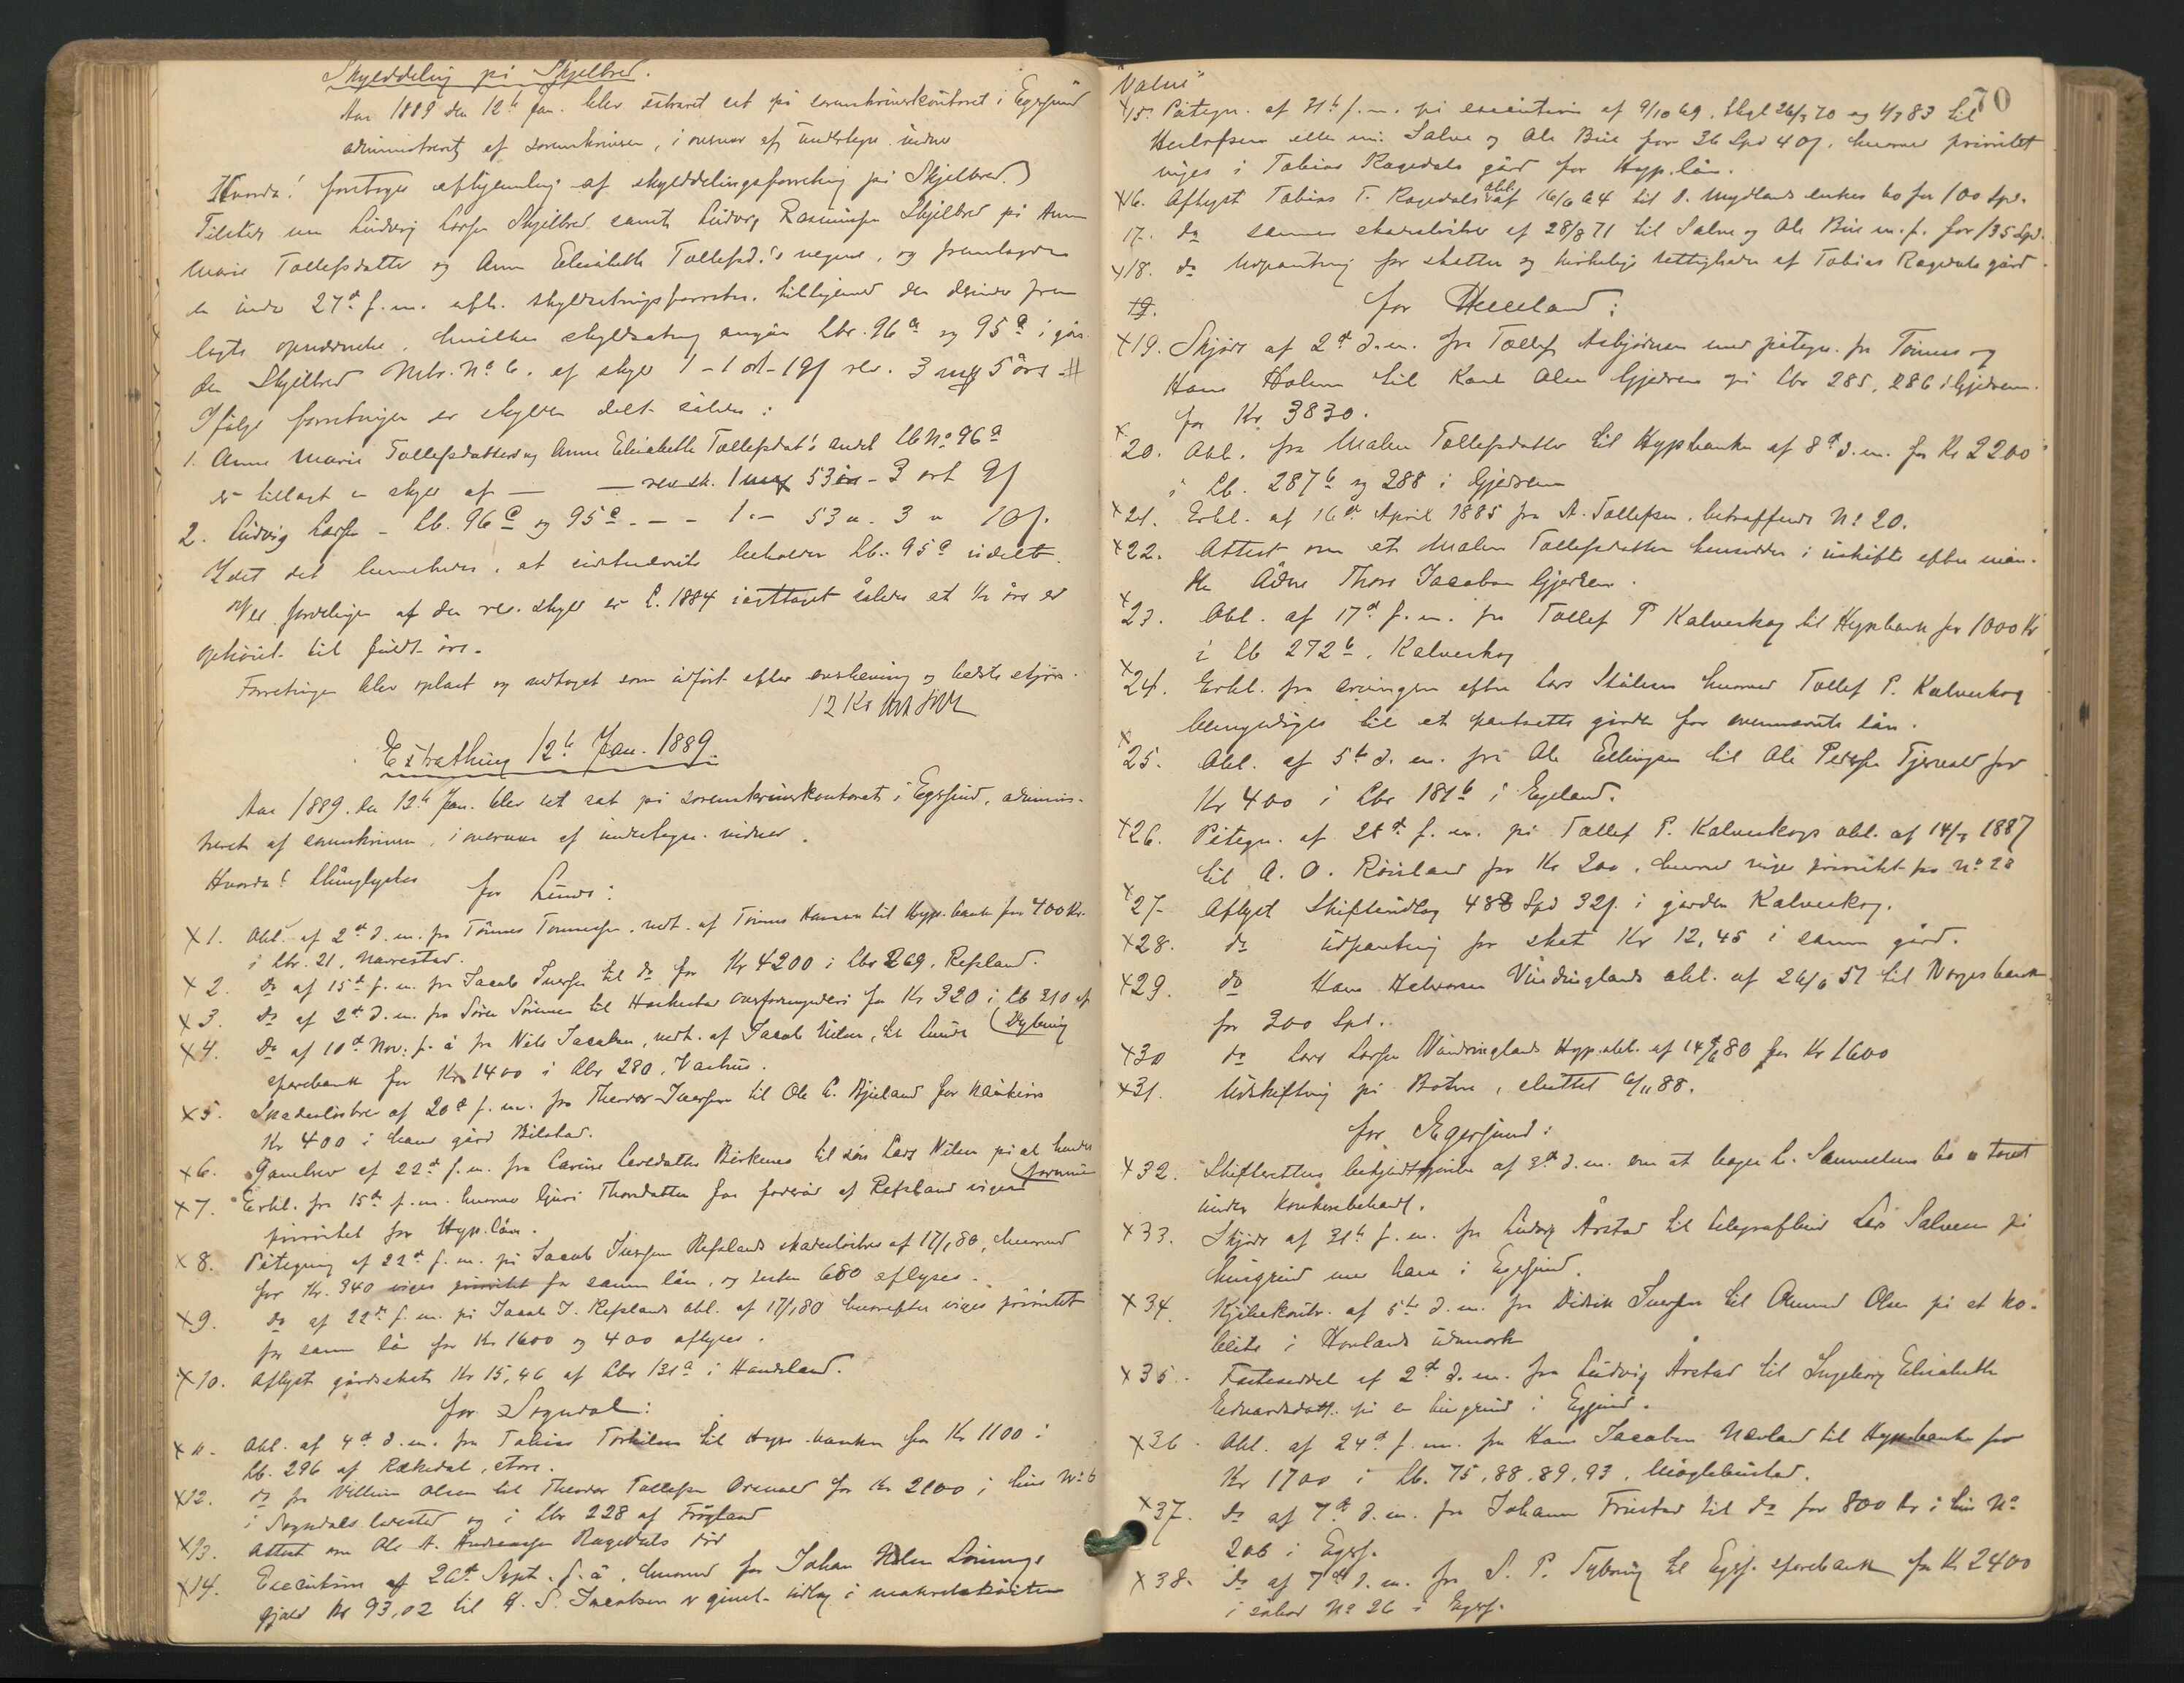 Skylddeling på Skjelbred.
Aar 1889 den 12te Jan. blev extraret sat på sorenskriverkontoret i Egersund
administreret af sorenskriveren, i overvær af undertegn. vidner
Hvorda! foretoges afhjemling af skylddelingsforretning på Skjelbred.
Tilstede var Ludvig Larsen Skjelbred samt Ludvig Rasmusen Skjelbred på Anne
Marie Tollefsdatter og Anne Elisabeth Tollefsd.'s vegne, og fremlagdes
en under 27de f.m. afh. skyldsætningsforretn. tilligemed den derunder frem
lagte opnævnelse, hvilken skyldsætning angår Lbr. 96a og 95a i går-
den Skjelbred Mtr. No 6. af skyld 1 - 1 ort - 19 f rev. 3 mrk 5 øre
Ifølge forretningen er skylden delt således:
1. Anne Marie Tollefsdatters og Anne Elisabeth Tollefsdat's andel Lb No 96a
er tillagt en skyld af — — rev. sk. 1 mrk 53 øre - 3 ort 9 f
2. Ludvig Larsen - Lb. 96c og 95a - - - 1 " - 53 " - 3 " 10 f.
Idet det bemærkes, at sidstnævnte beholder Lb. 95a udelt.
Ved fordelingen af den rev. skyld er L. 1884 iagttaget således at ½ øre er
ophøiet til fuldt øre.
Forretningen blev oplæst og vedtaget som udført efter overbevisning og bedste skjøn.
12 Kr
Extrathing 12te Jan. 1889.
Aar 1889. den 12te Jan. blev ret sat på sorenskriverkontoret i Egersund, adminis-
treret af sorenskriveren, i overvær af undertegn. vidner.
Hvorda! thinglystes
for Lund:
X 1. Obl. af 2de d.m. fra Tønnes Tønnesen, vedt. af Tønnes Hansen til Hyp.bank for 400 Kr.
i Lbr. 21, Navrestad.
X 2. Do af 15de f.m. fra Jacob Iversen til do for Kr 4200 i Lbr 269, Refsland.
X 3. Do af 2de d.m. fra Søren Sørensen til Haakestad overformynderi for Kr 320 i Lb 310 af
(Dybing
X 4. Do af 10de Nov. f. å fra Nils Jacobsen, vedt. af Jacob Nilsen, til Lunds
sparebank for Kr 1400 i Lbr 280, Vashus.
X 5. Skadesløsbrev af 20de f.m. fra Theodor Iversen til Ole A. Bjuland for kaution
Kr 400 i hans gård Bilstad.
X 6. Gavebrev af 22de f.m. fra Larsine Larsdatter Birkenes til søn Lars Nilsen på al hendes
(formue
X 7. Erkl. fra 15de f.m. hvorved Guri Thorsdatter for føderåd af Refsland viger
prioritet for Hyp.lån.
X 8. Påtegning af 22de f.m. på Jacob Iversen Refslands skadesløsbrev af 17/1 80, hvorved
for Kr. 340 viges prioritet for samme lån, og resten 680 aflyses.
X 9. do af 22de f.m. på Jacob I. Refslands obl. af 17/1 80 hvorefter viges prioritet
for samme lån for Kr 1600 og 400 aflyses.
X 10. Aflyst gårdsskat Kr 15,46 af Lbr 131a i Handeland.
for Sogndal:
X 11. Obl. af 4de d.m. fra Tobias Torkilsen til Hyp.banken for Kr 1100 i
Lb. 296 af Rækedal, store.
X 12. do fra Villum Olsen til Theodor Tollefsen Orrevad for Kr 2100 i hus No 6
i Sogndals ladested og i Lbr 228 af Frøyland
X 13. Attest om Ole A. Andreasen Ragedals død
X 14. Execution af 26de Sept. f. å. hvorved for Johan Holm Lønnings
gjæld Kr 93,02 til A. S. Jacobsen er gjort udlæg i makrelskøiten
"Valni"
70
X 15. Påtegn. af 31te f.m. på execution af 9/10 69, thgl 26/3 70 og 4/7 83 til
Herlofsen eller nu Salve og Ole Bue for 36 Spd 40 f, hvorved prioritet
viges i Tobias Ragedals gård for Hyp.lån.
X 16. Aflyst Tobias T. Ragedals obl. af 16/6 64 til O. Mydlands enkes bo for 100 Spd.
17. do sammes skadesløsbrev af 28/8 71 til Salve og Ole Bue m.f. for 135 Spd.
X 18. do Udpantning for skatter og kirkelige rettigheder af Tobias Ragedals gård.
19.
for Helleland:
X 19. Skjøde af 2de d.m. fra Tollef Asbjørnsen med påtegn. fra Tønnes og
Hans Holmen til Karl Olsen Gjedrem på Lbr 285, 286 i Gjedrem.
for Kr 3830.
X 20. Obl. fra Malene Tollefsdatter til Hypbanken af 8de d.m. for Kr 2200
i Lb. 287b og 288 i Gjedrem
X 21. Erkl. af 16de April 1885 fra A. Tollefsen, betræffende No 20.
X 22. Attest om at Malene Tollefsdatter hensidder i uskifte efter man-
den Ådne Thore Jacobsen Gjedrem.
X 23. Obl. af 17de f.m. fra Tollef P Kalveskog til Hypbank for 1000 Kr
i Lb 272b, Kalveskog
X 24. Erkl. fra arvingerne efter Lars Ståleson hvorved Tollef P. Kalveskog
bemyndiges til at pantsætte gården for ovennævnte lån.
X 25. Obl. af 5te d.m. fra Ole Ellingsen til Ole Pedersen Tjernes for
Kr 400 i Lbr 181b i Egeland.
X 26. Påtegn. af 28de f.m. på Tollef P. Kalveskogs obl. af 14/3 1887
til A. O. Røisland for Kr 200, hvorved viges prioritet for No 23
X 27. Aflyst Skifteudlæg 488 Spd 32 f. i gården Kalveskog.
X 28. do udpantning for skat Kr 12,45 i samme gård.
X 29. do Hans Halvorsen Vindinglands obl. af 26/6 57 til Norges bank
for 300 Spd.
X 30 do Lars Larsen Vandringlands Hyp.obl. af 14/6 80 for Kr 1600
X 31. Udskiftning på Botne, sluttet 6/11 88.
for Egersund:
X 32. Skifterettens bekjendtgjørelse af 3de d.m. om at bager L. Samuelsens bo er taget
under konkursbehandl.
X 33. Skjøde af 31te f.m. fra Ludvig Årstad til telegrafbud Lars Salvesen på
husgrund med have i Egersund.
X 34. Kjøbekontr. af 5te d.m. fra Didrik Iversen til Amund Olsen på et ko-
beite i Hovlands udmark
X 35. Fæsteseddel af 2de d.m. fra Ludvig Årstad til Ingeborg Elisabeth
Edvardsdatt. på en husgrund i Egersund.
X 36. Obl. af 24de f.m. fra Hans Jacobsen Nævland til Hypbanken for
Kr 1700 i Lb. 75, 88, 89, 93, Møglebustad.
X 37. Do af 7de d.m. fra Johannes Frustad til do for 800 Kr i hus No
206 i Egers.
X 38. Do af 7de d.m. fra S. P. Dybing til Egers. sparebank for Kr 2400
i søbod No 26 i Egers.